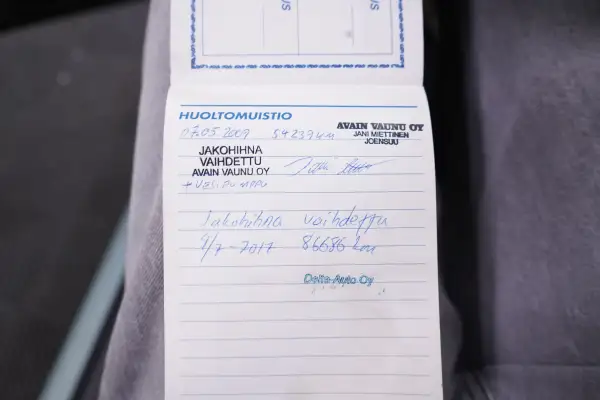 HUOLTOMUISTIO
07.05.2009 54237km
AVAIN VAUNU OY
JANI MIETTINEN
JOENSUU
JAKOHIHNA
VAIHDETTU
AVAIN VAUNU OY
+ VESIPUMPPU
Jakohihna vaihdettu
86686 km
Delta-Auto Oy